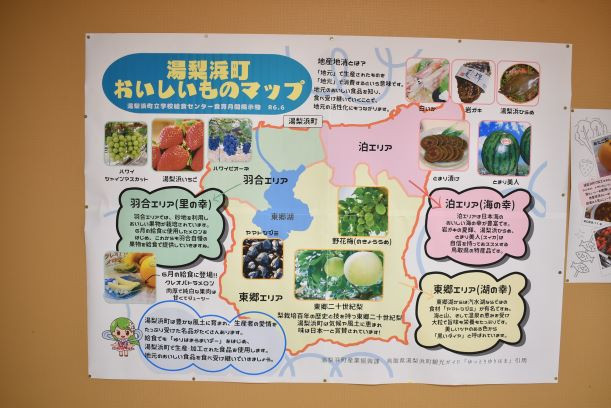 湯梨浜町
おいしいものマップ
湯梨浜町立学校給食センター食育月間掲示物 R6.6
地産地消とは?
「地元」で生産されたものを
「地元」で消費するという意味です。
地元のおいしい食品を知り、
食べ受け継いでいくことで、
地元の活性化にもつながります。
白いか
岩ガキ
湯梨浜ひらめ
湯梨浜町
ハワイ
シャインマスカット
湯梨浜いちご
ハワイピオーネ
羽合エリア
泊エリア
とまり漬け
とまり美人
羽合エリア(里の幸)
羽合エリアでは、砂地を利用し
おいしい果物が栽培されています。
6月の給食に使用したメロンを
はじめ、これからも羽合自慢の
果物を給食で提供していきますね。
東郷湖
ヤマトシジミ
野花梅(のきょううめ)
泊エリア(海の幸)
泊エリアは日本海の
おいしい海の幸が豊富です。
岩ガキの夏輝、湯梨浜ひらめ、
とまり美人(スイカ)は
自信を持っておススメする
鳥取県の特産品です。
6月の給食に登場!!
クレオパトラメロン
肉厚で純白な果肉は
甘くてジューシー
東郷エリア
東郷二十世紀梨
梨栽培百年の歴史と技を持つ東郷二十世紀梨
湯梨浜町は気候や風土に恵まれ
味は日本一と賞賛されています!
東郷エリア(湖の幸)
東郷湖からは汽水湖ならではの
食材「ヤマトシジミ」が有名ですね。
海と山、そして温泉の恵みを受け
大粒で旨味も栄養もたっぷりです。
美しいツヤのある色から
「黒いダイヤ」と呼ばれています。
湯梨浜町は豊かな風土に育まれ、生産者の愛情を
たっぷり受けた名品がたくさんあります。
給食でも「ゆりはまうまいデー」をはじめ、
湯梨浜町で生産・加工された食品を使用します。
地元のおいしい食品を食べ受け継いでいきましょう。
湯梨浜町産業振興課 鳥取県湯梨浜町観光ガイド「ゆっとりゆりはま」引用